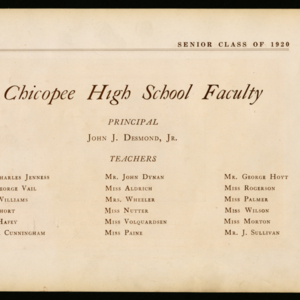 SENIOR CLASS OF 1920
Chicopee High School Faculty
PRINCIPAL
John J. Desmond, Jr.
TEACHERS
Charles Jenness Mr. John Dyman Mr. George Hoyt
George Vail Miss Aldrich Miss Rogerson
Williams Mrs. Wheeler Miss Palmer
Short Miss Nutter Miss Wilson
Hafey Miss Volquardsen Miss Morton
Cunningham Miss Paine Mr. J. Sullivan